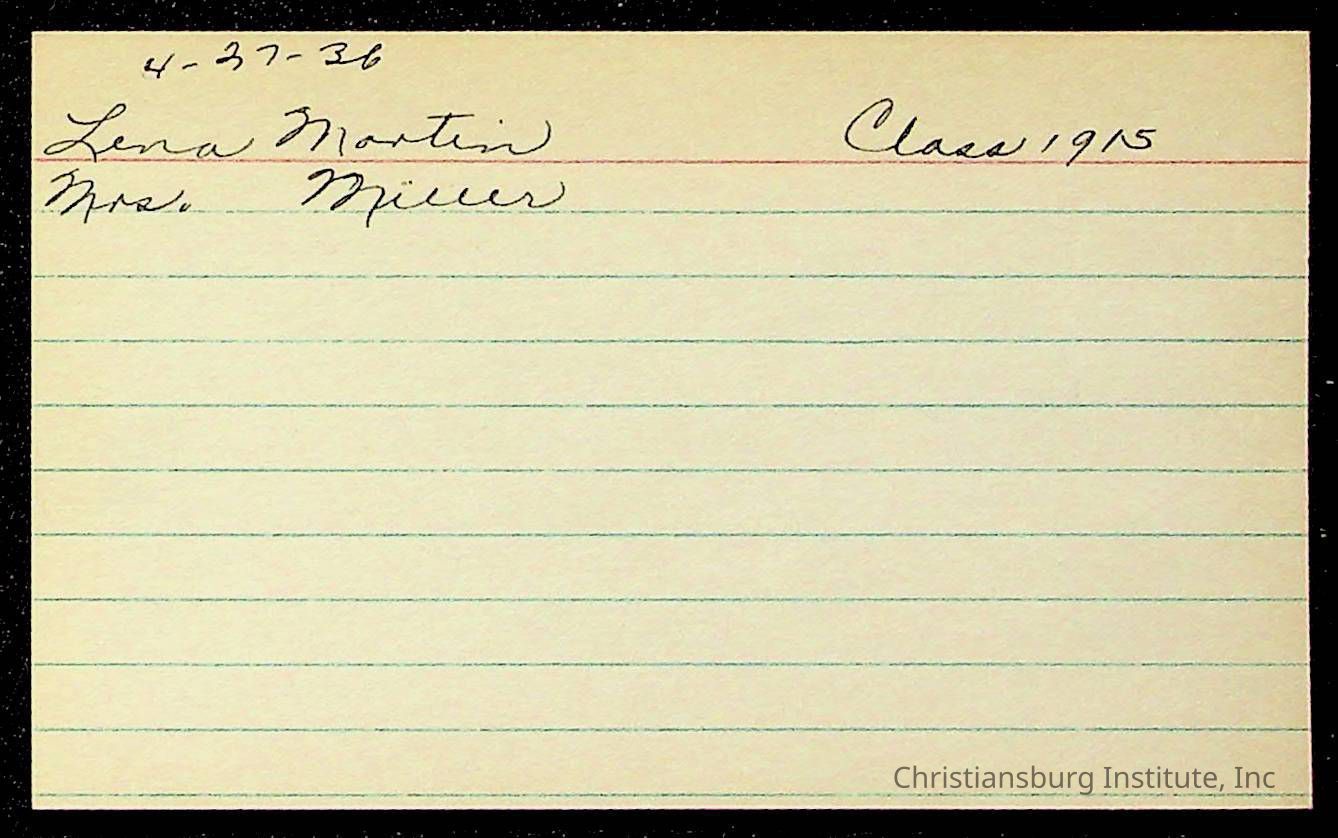 4-27-36
Lena Martin Class 1915
Mrs. Miller
Christiansburg Institute, Inc